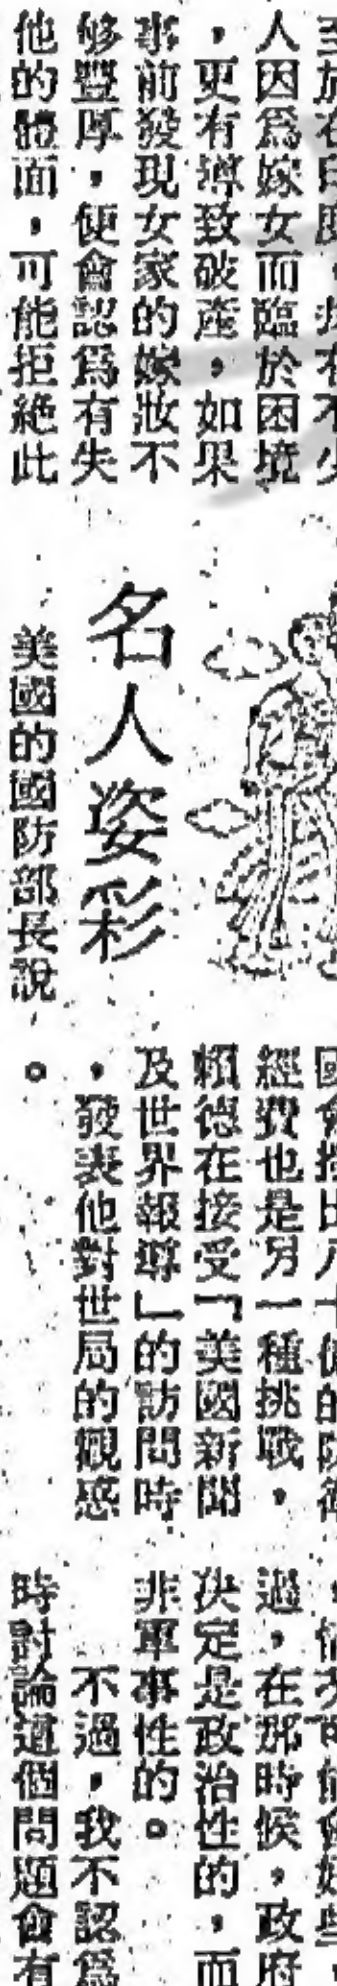 人因爲嫁女而臨於困境
，更有導致破產，如果
事前發現女家的嫁妝不
够豐厚，便會認爲有失
他的體面，可能拒絶此
名人姿彩
美國的國防部長說
經費也是另一種挑戰，
賴德在接受「美國新聞
及世界報導」的訪問時
，發表他對世局的觀感
。
過，在那時候，政府
决定是政治性的，而
非軍事性的。
不過，我不認爲
時討論這個問題會有